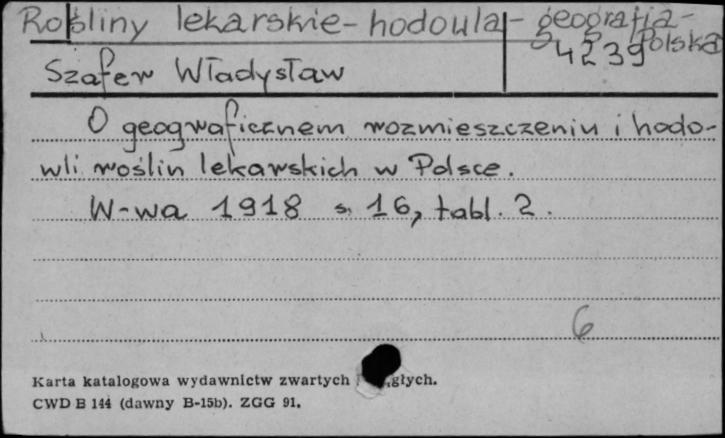 Rośliny lekarskie - hodowla - geografia -
Polska
4239
Szafer Władysław
O geograficznem rozmieszczeniu i hodo-
wli roślin lekarskich w Polsce.
W-wa 1918 s. 16, tabl. 2.
6
Karta katalogowa wydawnictw zwartych głych.
CWD B 144 (dawny B-15b). ZGG 91.